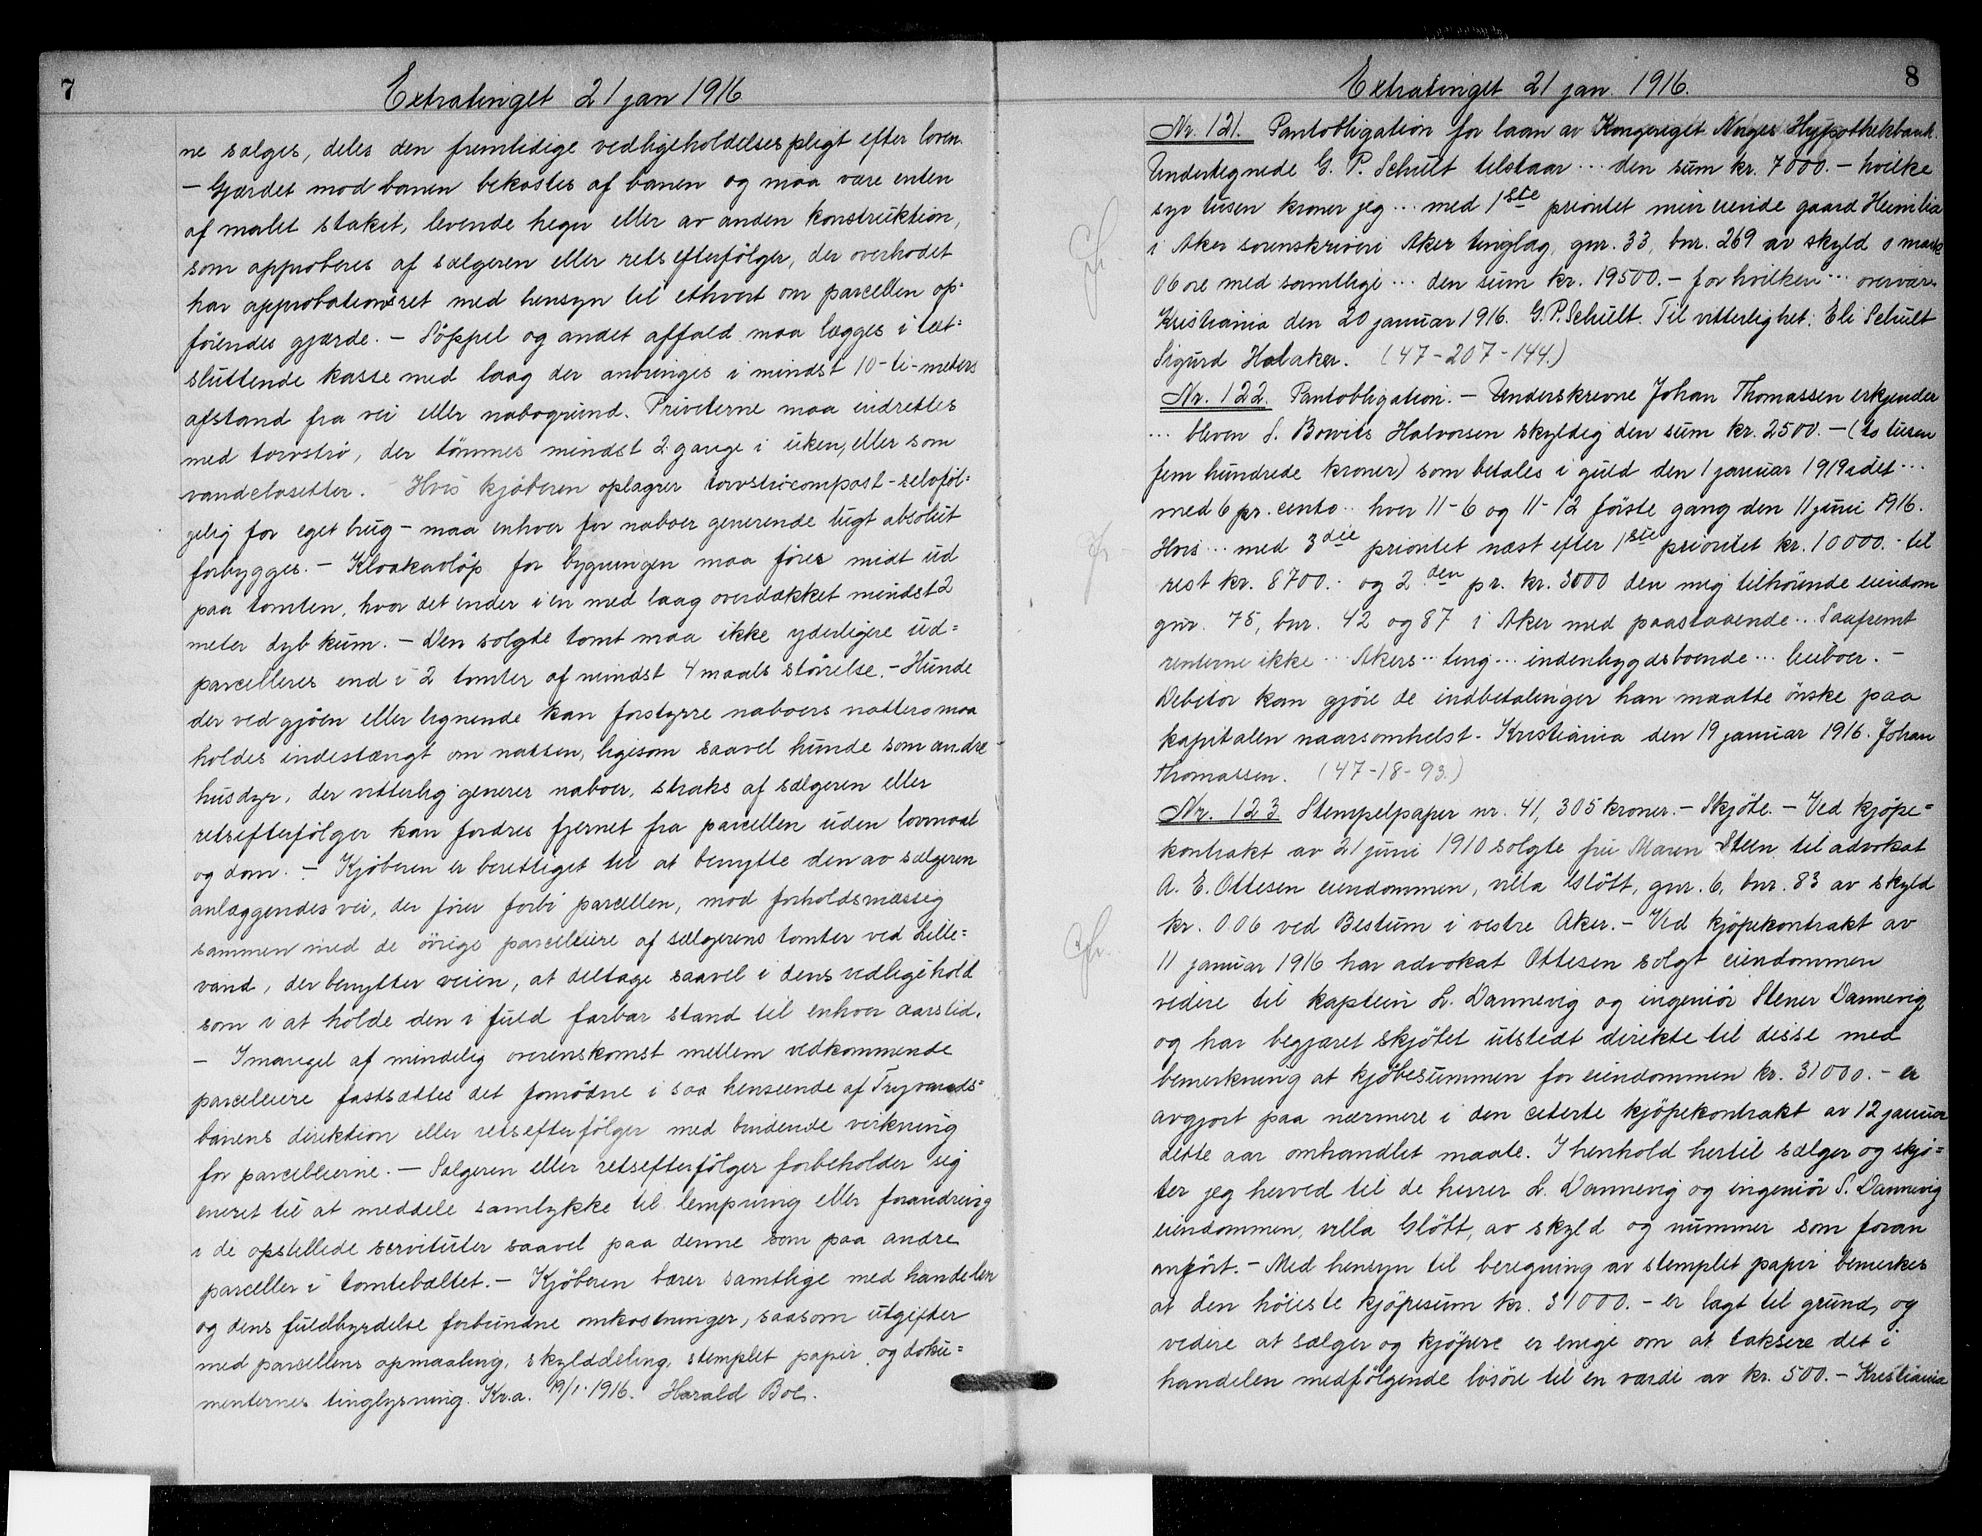 7
Extratinget 21 jan 1916
ne sælges, deles den fremtidige vedligeholdelsespligt efter loven.
- Gjærdet mod banen bekostes af banen og maa være enten
af malet staket, levende hegn eller av anden konstruktion,
som approberes af sælgeren eller retsefterfølger, der overhodet
har approbationsret med hensyn til ethvert om parcellen op-
føiendes gjærde. - Søppel og andet affald maa lægges i tæt-
sluttende kasse med laag der anbringes i mindst 10-ti-meters
afstand fra vei eller nabogrund. Priveterne maa indrettes
med torvstrø, der tømmes mindst 2 gange i uken, eller som
vandclosetter. Hvis kjøberen oplagrer torvstrøcompost - selvføl-
gelig for eget brug - maa enhver for naboer generende lugt absolut
forbygges. - Kloakavløp for bygningen maa føres midt ud
paa tomten, hvor det ender i en med laag overdækket mindst 2
meter dyb kum. - Den solgte tomt maa ikke yderligere ud-
parcelleres end i 2 tomter af mindst 4 maals størrelse. - Hunde
der ved gjøen eller lignende kan forstyrre naboers nattero maa
holdes indestængt om natten, ligesom saavel hunde som andre
husdyr, der vitterlig generer naboer, straks af sælgeren eller
retsefterfølger kan fordres fjernet fra parcellen uden lovmaal
og dom. - Kjøberen er berettiget til at benytte den av sælgeren
anlæggendes vei, der fører forbi parcellen, mod forholdsmæssig
sammen med de øvrige parceleiere af sælgerens tomter ved Lille-
vand, der benytter veien, at deltage saavel i dens vedligehold
som i at holde den i fuld farbar stand til enhver aarstid.
- I mangel af mindelig overenskomst mellem vedkommende
parceleiere fastsættes det fornødne i saa henseende af Tryvands-
banens direktion eller retsefterfølger med bindende virkning
for parceleierne. - Sælgeren eller retsefterfølger forbeholder sig
eneret til at meddele samtykke til lempning eller forandring
i de opstillede servituter saavel paa denne som paa andre
parceller i tomtebæltet. - Kjøberen bærer samtlige med handelen
og dens fuldbyrdelse forbundne omkostninger, saasom utgifter
med parcellens opmaaling, skylddeling, stemplet papir og doku-
menternes tinglysning. Kr.a. 19/1 1916. Harald Boe.
8
Extratinget 21 jan. 1916.
Nr. 121. Pantobligation for laan av Kongeriget Norges Hypothekbank.
Undertegnede G. P. Schult tilstaar ... den sum kr. 7000.- hvilke
syv tusen kroner jeg ... med 1ste prioritet min eiende gaard Heimlia
i Aker sorenskriveri Aker tinglag, gnr. 33, bnr. 269 av skyld 0 mark
06 øre med samtlige ... den sum kr. 19500.- for hvilken ... overvær.
Kristiania den 20 januar 1916. G.P. Schult. Til vitterlighet: Eli Schult
Sigurd Holaker. (47-207-144.)
Nr. 122. Pantobligation. - Underskrevne Johan Thomassen erkjender
... bleven S. Bowits Halvorsen skyldig den sum kr. 2500.- (to tusen
fem hundrede kroner) som betales i guld den 1 januar 1919 idet ...
med 6 pr. cento .. hver 11-6 og 11-12 første gang den 11 juni 1916.
Hvis ... med 3die prioritet næst efter 1ste prioritet kr. 10000.- til
rest kr. 8700.- og 2den pr. kr. 3000 den mig tilhørende eiendom
gnr. 75, bnr. 42 og 87 i Aker med paastaaende ... Saafremt
renterne ikke ... Akers ... ting ... indenbygdsboende ... leiboer. -
Debitor kan gjøre de indbetalinger han maatte ønske paa
kapitalen naarsomhelst. - Kristiania den 19 januar 1916. Johan
Thomassen. (47-18-93.)
Nr. 123 Stempelpaper nr. 41, 305 kroner. - Skjøte. - Ved kjøpe-
kontrakt av 21 juni 1910 solgte fru Maren Steen til advokat
A. E. Ottesen eiendommen, villa Gløtt, gnr. 6, bnr. 83 av skyld
kr. 0.06 ved Bestum i vestre Aker. - Ved kjøpekontrakt av
11 januar 1916 har advokat Ottesen solgt eiendommen
videre til kaptein L. Dannevig og ingeniør Stener Dannevig
og har begjæret skjøtet utstedt direkte til disse med
bemerkning at kjøbesummen for eiendommen kr. 31000.- er
avgjort paa nærmere i den citerte kjøpekontrakt av 12 januar
dette aar omhandlet maate. I henhold hertil sælger og skjø-
ter jeg herved til de herrer L. Dannevig og ingeniør S. Dannevig
eiendommen, villa Gløtt, av skyld og nummer som foran
anført. - Med hensyn til beregning av stemplet papir bemerkes
at den høieste kjøpesum kr. 31000.- er lagt til grund, og
videre at sælger og kjøpere er enige om at taksere det i
handelen medfølgende løsøre til en værdi av kr. 500. - Kristiania